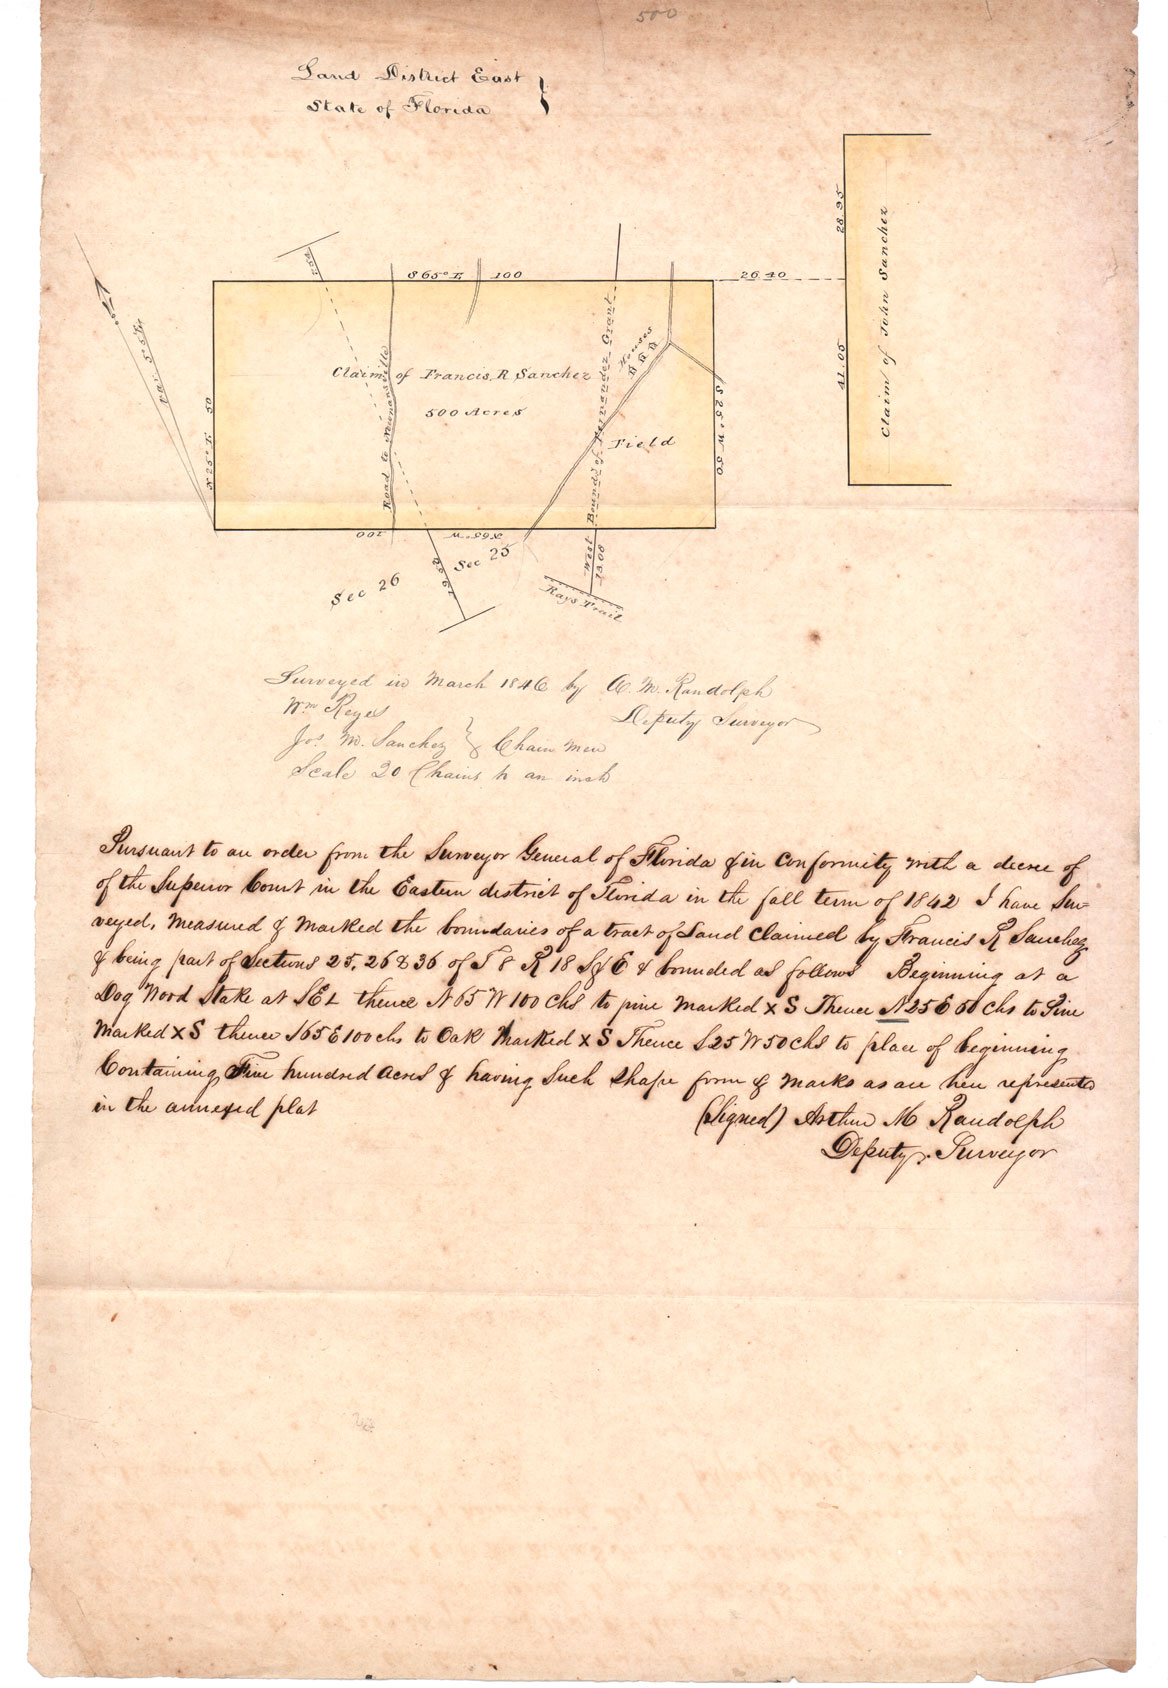 500
Land District East }
State of Florida
28.95
Claim of John Sanchez
41.05
254
S 65° E 100
26.40
No.
Va. 5° 5 E
N 25° E 50
Claim of Francis R Sanchez
500 Acres
Road to Newnansville
West Bound of Fernandez Grant
Houses
Field
S 25° W 50
100
N 65° W
Sec 26
Sec 25
13.08
Rays Trail
Surveyed in March 1846 by A. M. Randolph
Wm Reyes Deputy Surveyor
Jos. M. Sanchez } Chain men
Scale 20 Chains to an inch
Pursuant to an order from the Surveyor General of Florida & in conformity with a decree of
of the Superior Court in the Eastern district of Florida in the fall term of 1842 I have Sur-
veyed, measured & marked the boundaries of a tract of Land claimed by Francis R Sanchez
& being part of Sections 25, 26 & 36 of T 8 R 18 S & E & bounded as follows Beginning at a
Dog Wood Stake at SE L thence N 65 W 100 chs to pine marked X S Thence N 25 E 50 chs to Pine
marked X S thence S 65 E 100 chs to Oak Marked X S Thence S 25 W 50 chs to place of beginning
Containing Five hundred acres & having Such shape form & marks as are here represented
in the annexed plat (Signed) Arthur M Randolph
Deputy Surveyor